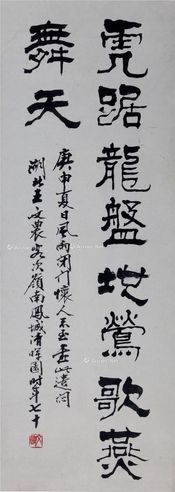 虎踞龍盤地鶯歌燕
舞天
庚申夏日風雨閉門懷人不至書此遣悶
湖北王文農客次嶺南鳳城清暉園時年七十